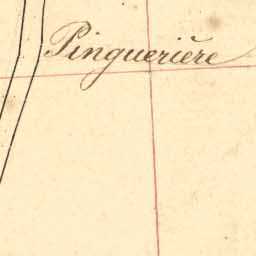 Pinguerière